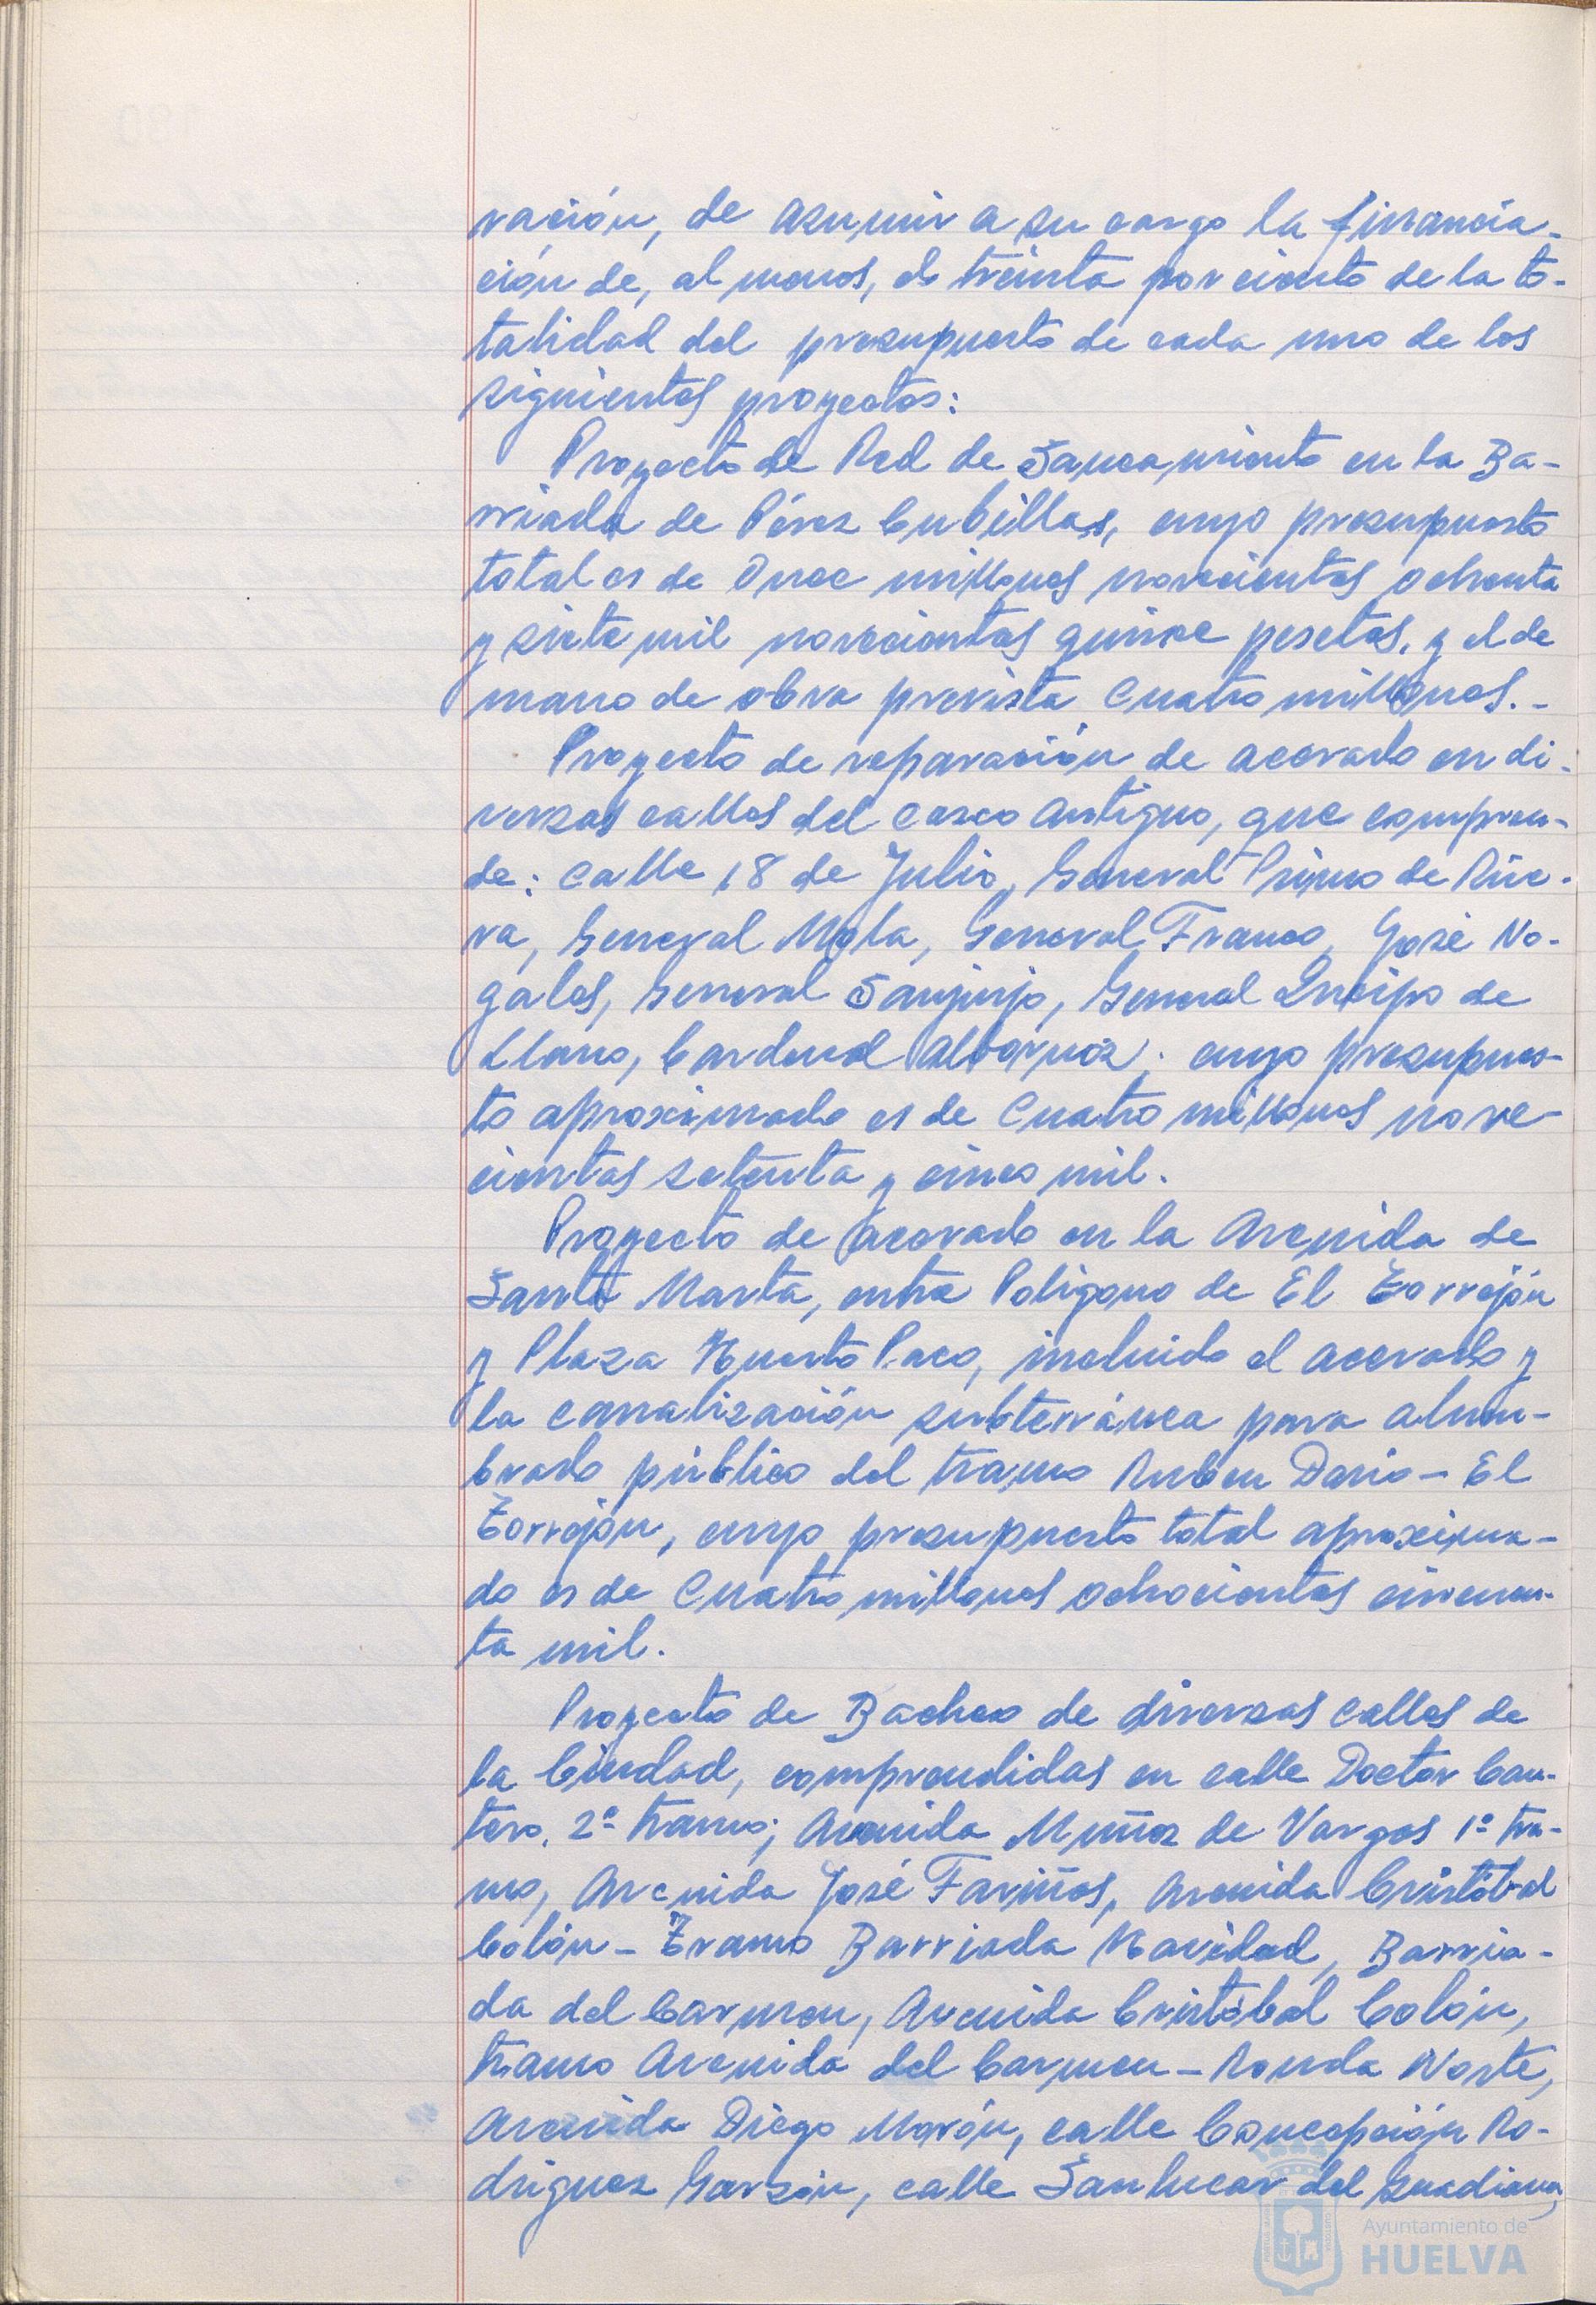 vación, de asumir a su cargo la financia-
ción de, al menos, el treinta por ciento de la to-
talidad del presupuesto de cada uno de los
siguientes proyectos:
Proyecto de Red de Saneamiento en la Ba-
rriada de Pérez Cubillas, cuyo presupuesto
total es de Once millones novecientas ochenta
y siete mil novecientas quince pesetas, y el de
mano de obra prevista Cuatro millones.-
Proyecto de reparación de acerado en di-
versas calles del casco antiguo, que compren-
de: calle 18 de Julio, General Primo de Rive-
ra, General Mola, General Franco, José No-
gales, General Sanjurjo, General Queipo de
Llano, Cardenal Albornoz; cuyo presupues-
to aproximado es de Cuatro millones nove-
cientas setenta y cinco mil.
Proyecto de acerado en la Avenida de
Santa Marta, entre Polígono de El Torrejón
y Plaza Huerto Paco, incluido el acerado y
la canalización subterránea para alum-
brado público del tramo Ruben Dario - El
Torrejón, cuyo presupuesto total aproxima-
do es de Cuatro millones ochocientas cincuen-
ta mil.
Proyecto de Bacheo de diversas calles de
la Ciudad, comprendidas en calle Doctor Can-
tero, 2º tramo; Avenida Muñoz de Vargas 1º tra-
mo, Avenida José Fariñas, Avenida Cristóbal
Colón - Tramo Barriada Navidad, Barria-
da del Carmen, Avenida Cristóbal Colón,
tramo Avenida del Carmen - Ronda Norte,
Avenida Diego Morón, calle Concepción Ro-
driguez Garzón, calle Sanlucar del Guadiana,
Ayuntamiento de
HUELVA